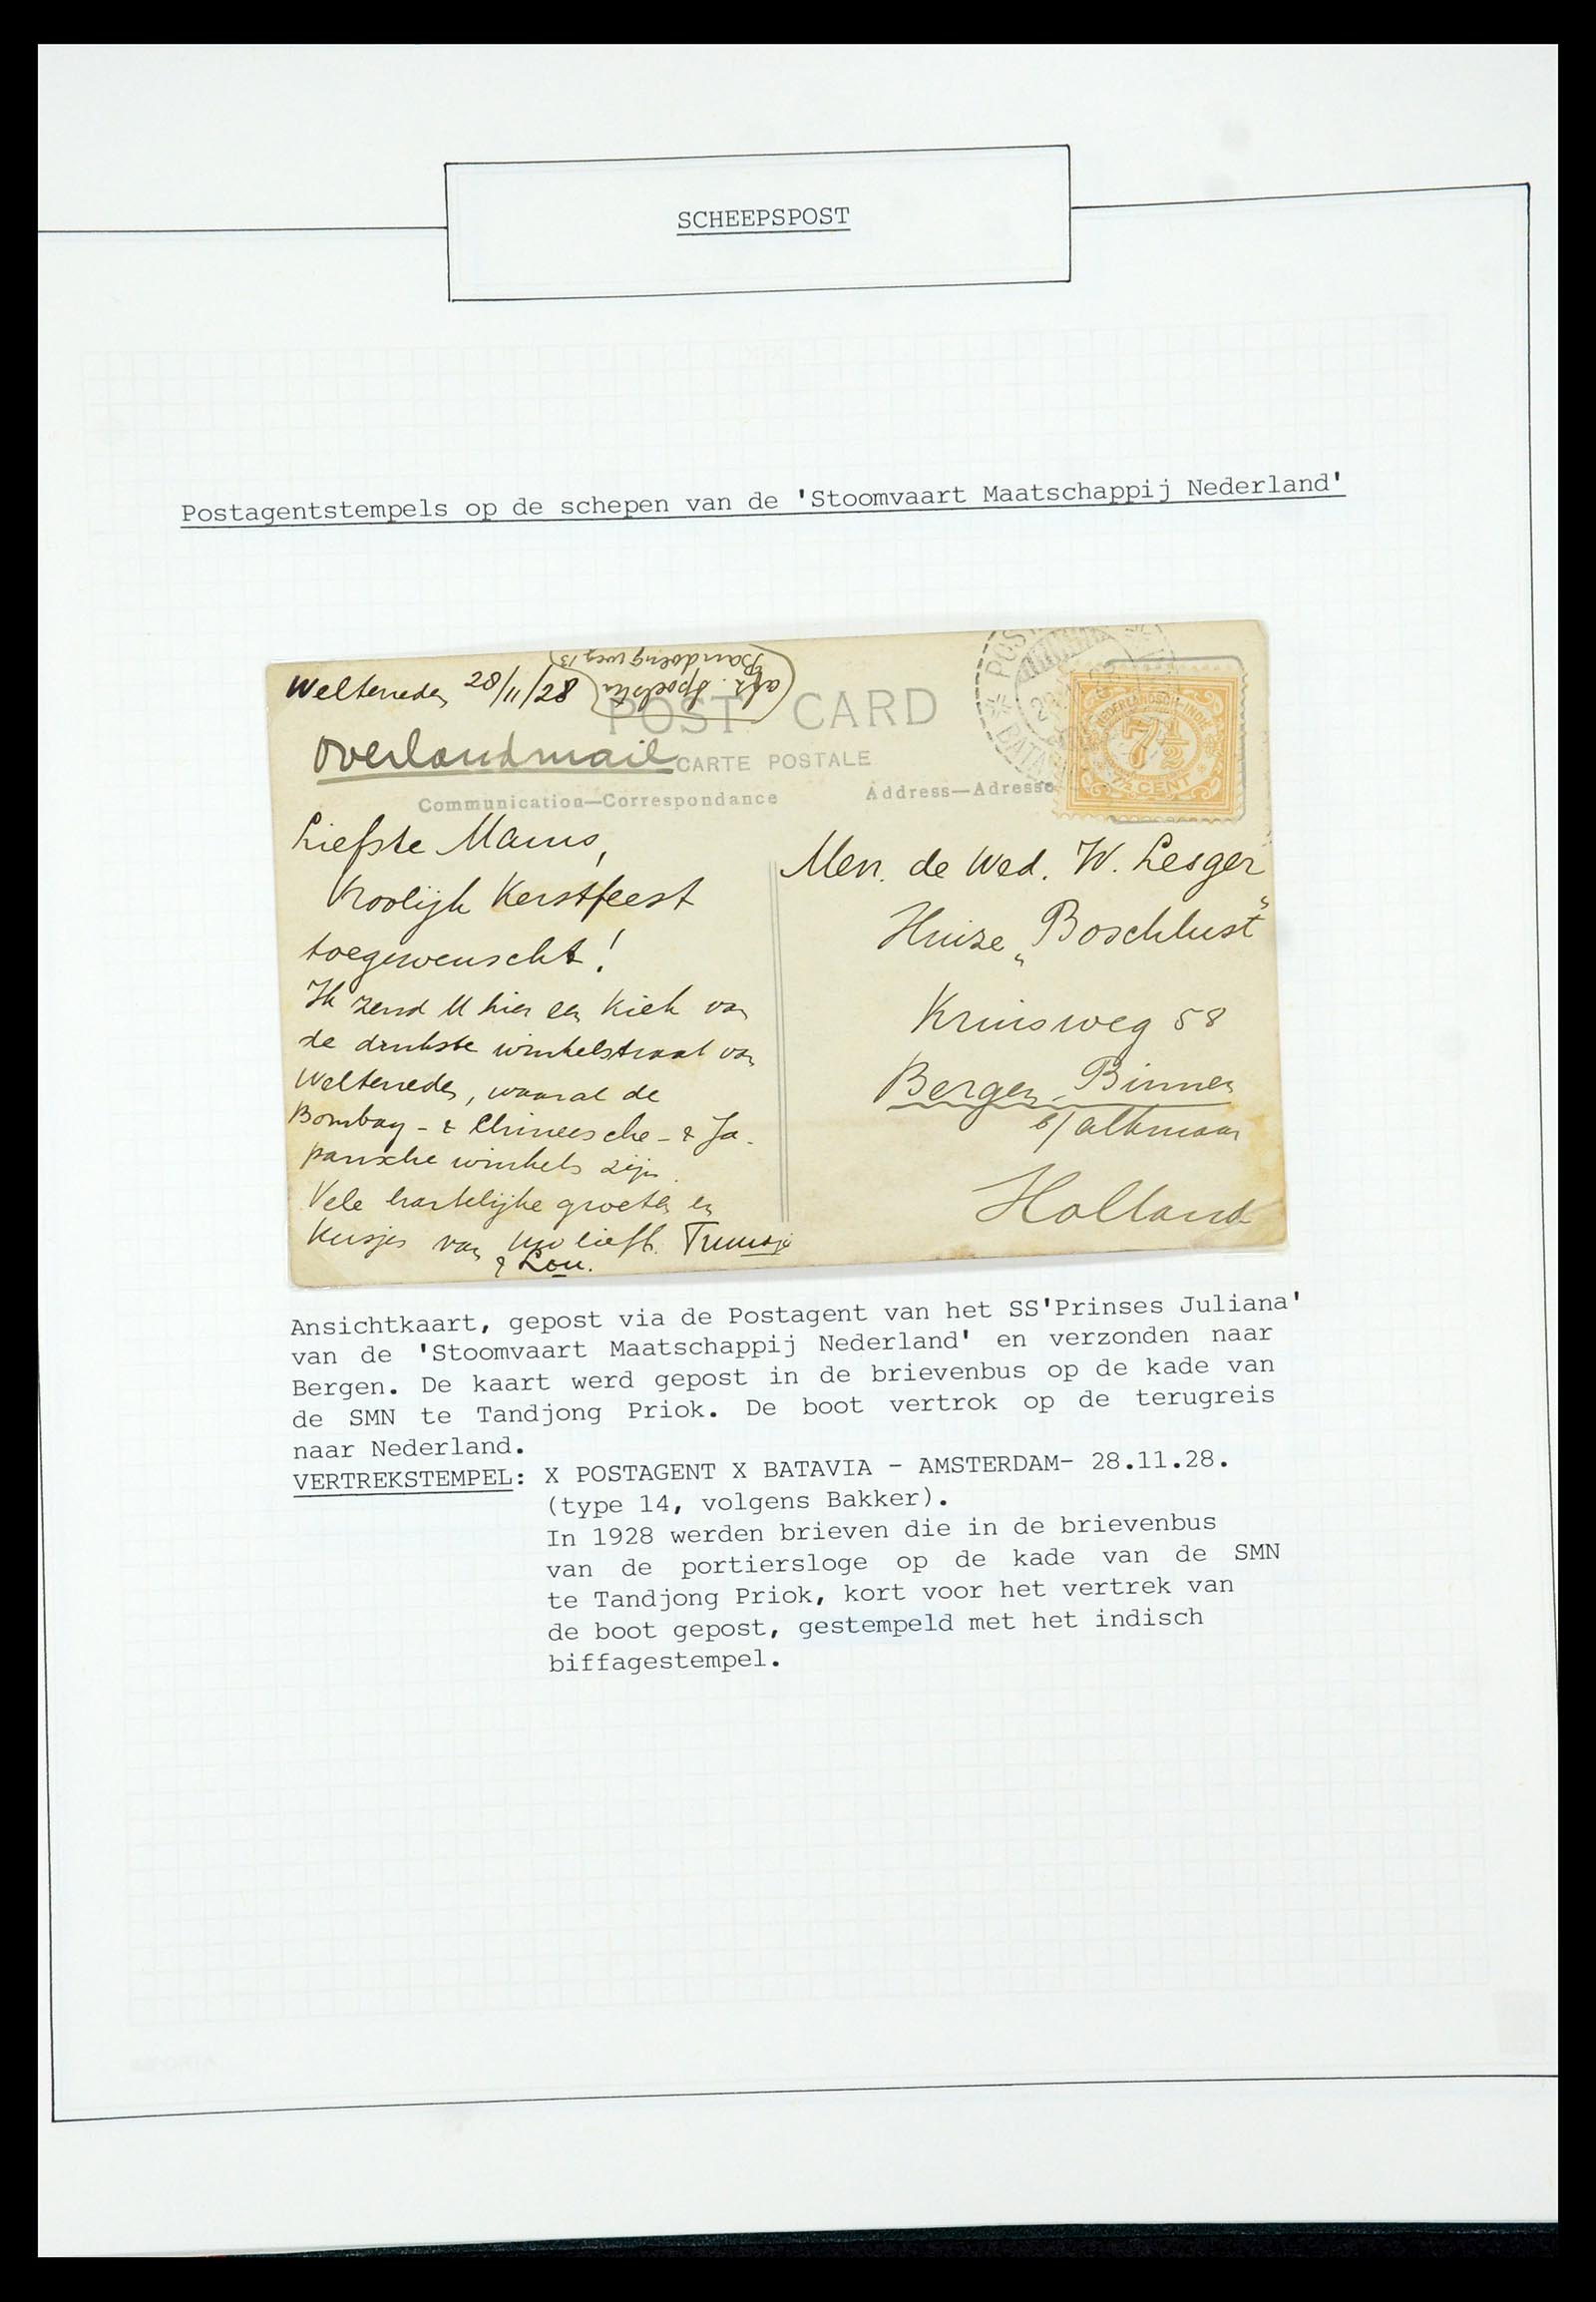 SCHEEPSPOST
Postagentstempels op de schepen van de 'Stoomvaart Maatschappij Nederland'
Weltevreden 28/11/28
afz. Spoelstra
Bandoengweg 13
POST CARD
Overlandmail
CARTE POSTALE
Communication—Correspondance
Address—Adresse
NEDERLANDSCH-INDIE
7½
7½ CENT
Liefste Mams,
Vroolijk Kerstfeest
toegewenscht!
Ik zend U hier een kiek van
de drukste winkelstraat van
Weltevreden, waaral de
Bombay- & Chineesche- & Ja-
pansche winkels zijn.
Vele hartelijke groeten en
Kusjes van Uw liefh. Truusje
& Lou.
Mevr. de Wed. W. Lesger
Huize „Boschlust"
Kruisweg 58
Bergen-Binnen
b/ Alkmaar
Holland
Ansichtkaart, gepost via de Postagent van het SS'Prinses Juliana'
van de 'Stoomvaart Maatschappij Nederland' en verzonden naar
Bergen. De kaart werd gepost in de brievenbus op de kade van
de SMN te Tandjong Priok. De boot vertrok op de terugreis
naar Nederland.
VERTREKSTEMPEL: X POSTAGENT X BATAVIA - AMSTERDAM- 28.11.28.
(type 14, volgens Bakker).
In 1928 werden brieven die in de brievenbus
van de portiersloge op de kade van de SMN
te Tandjong Priok, kort voor het vertrek van
de boot gepost, gestempeld met het indisch
biffagestempel.